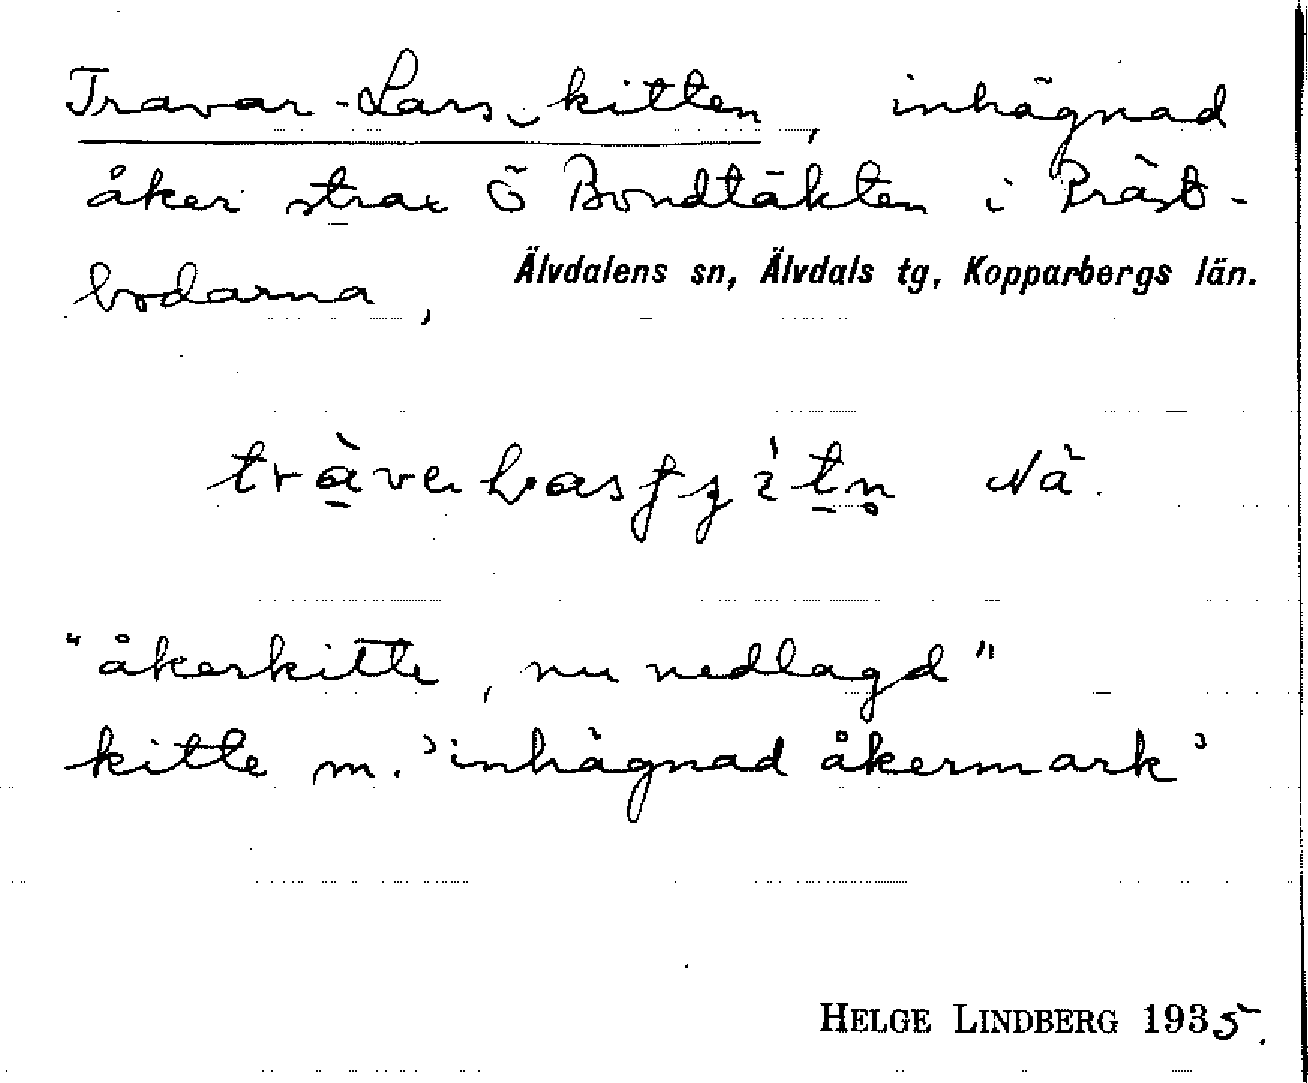 Travar-Lars‿kitten, inhägnad
åker strax Ö Bondtäkten i Präst-
bodarna,
Älvdalens sn, Älvdals tg, Kopparbergs län.
Nä.
"åkerkitte, nu nedlagd"
kitte m. 'inhägnad åkermark'
HELGE LINDBERG 1935.